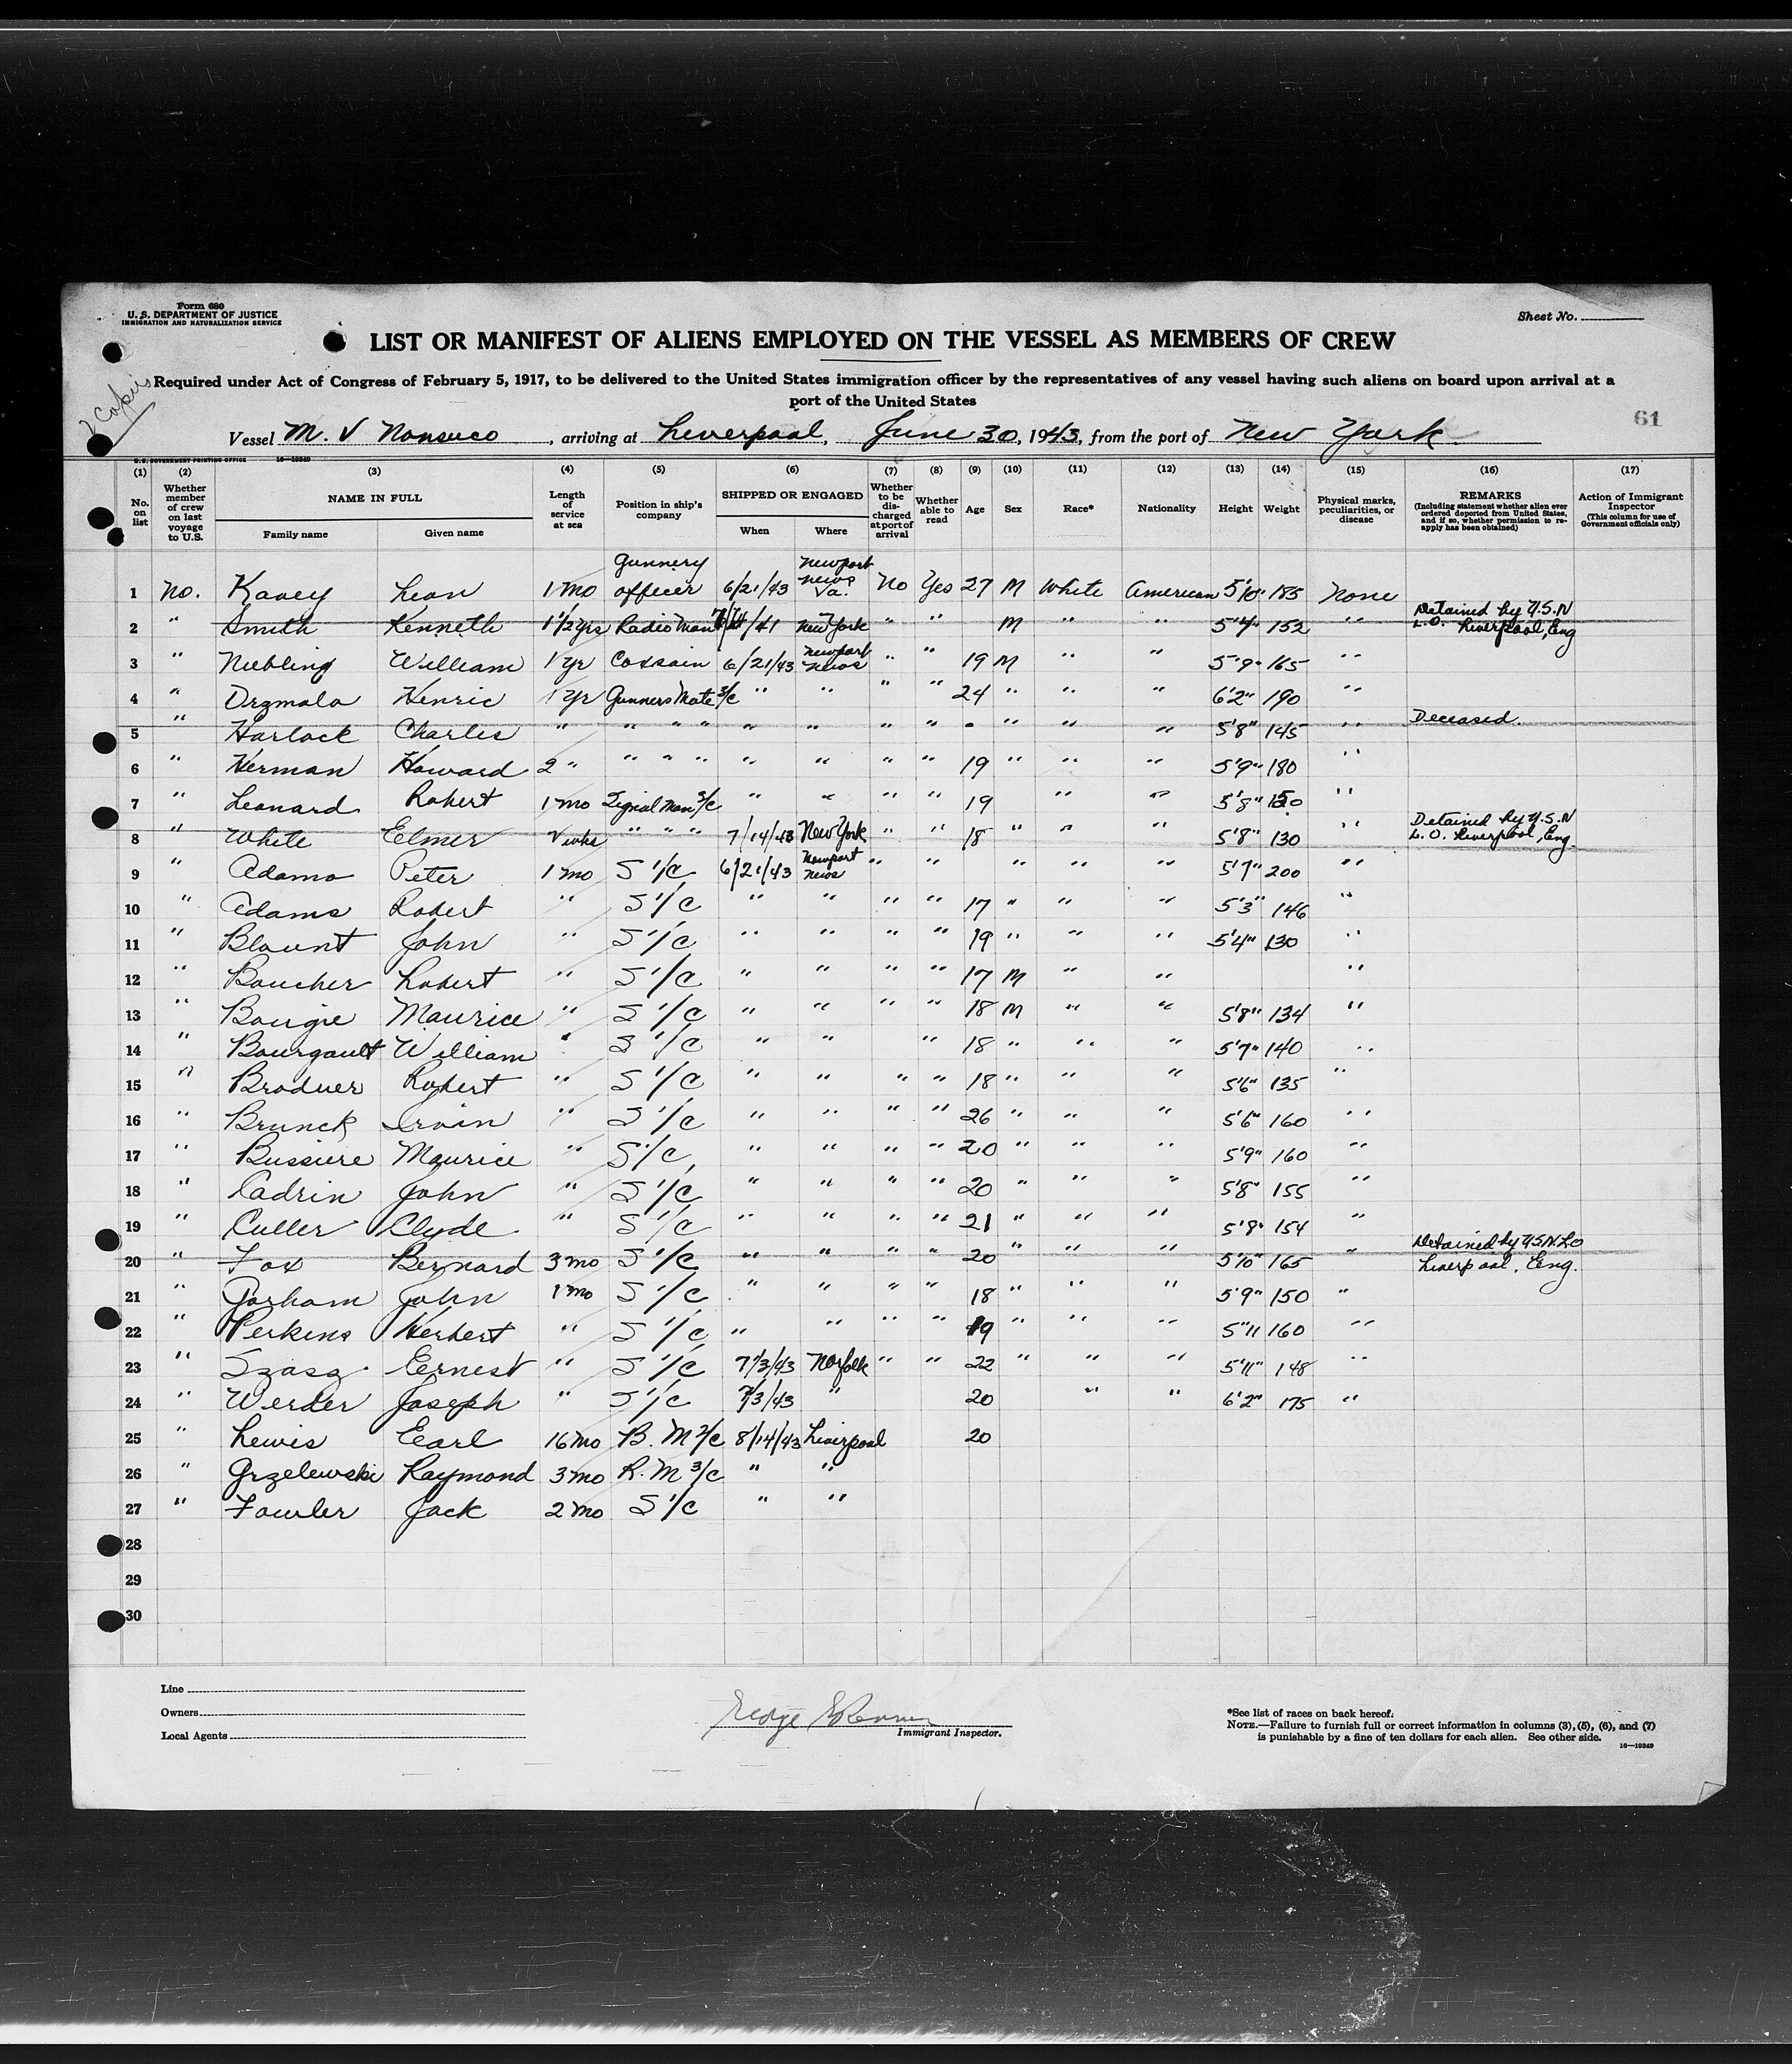 Form 680
U. S. DEPARTMENT OF JUSTICE
IMMIGRATION AND NATURALIZATION SERVICE
Sheet No.
LIST OR MANIFEST OF ALIENS EMPLOYED ON THE VESSEL AS MEMBERS OF CREW
Required under Act of Congress of February 5, 1917, to be delivered to the United States immigration officer by the representatives of any vessel having such aliens on board upon arrival at a
port of the United States
61
Vessel M. V Nonsuco, arriving at Liverpool, June 30, 1943, from the port of New York
U. S. GOVERNMENT PRINTING OFFICE 16—19349
(1) (2) (3) (4) (5) (6) (7) (8) (9) (10) (11) (12) (13) (14) (15) (16) (17)
No. on list
Whether member of crew on last voyage to U.S.
NAME IN FULL
Family name
Given name
Length of service at sea
Position in ship's company
SHIPPED OR ENGAGED
When
Where
Whether to be discharged at port of arrival
Whether able to read
Age
Sex
Race*
Nationality
Height
Weight
Physical marks, peculiarities, or disease
REMARKS
(Including statement whether alien ever ordered deported from United States, and if so, whether permission to reapply has been obtained)
Action of Immigrant Inspector
(This column for use of Government officials only)
1 No. Kavey Leon 1 mo Gunnery officer 6/21/43 Newport News Va. No Yes 27 M White American 5'10" 185 None
2 " Smith Kenneth 1 1/2 yrs Radio Man /41 New York " " M " " 5'4" 152 " Detained by U.S.N L.O. Liverpool, Eng
3 " Niebling William 1 yr Coxsain 6/21/43 Newport News " " 19 M " " 5'9" 165 "
4 " Drzmala Henric 1 yr Gunners Mate 3/c " " " " 24 " " " 6'2" 190 "
5 " Harlock Charles " " " " " " " " " " " 5'8" 145 " Deceased.
6 " Herman Howard 2 " " " " " " " " 19 " " " 5'9" 180 "
7 " Leonard Robert 1 mo Signal Man 3/c " " " " 19 " " 5'8" 150 "
8 " White Elmer wks " " " 7/14/43 New York " " 18 " " " 5'8" 130 " Detained by U.S.N L.O. Liverpool, Eng.
9 " Adamo Peter 1 mo S 1/C 6/21/43 Newport News " " " " " 5'7" 200 "
10 " Adams Robert " S 1/C " " " " 17 " " " 5'3" 146 "
11 " Blount John " S 1/C " " " " 19 " " " 5'4" 130 "
12 " Boucher Robert " S 1/C " " " " 17 M " " "
13 " Bougie Maurice " S 1/C " " " " 18 M " " 5'8" 134 "
14 " Bourgault William " S 1/C " " " 18 " " " 5'7" 140 "
15 " Broduer Robert " S 1/C " " " " 18 " " " 5'6" 135 "
16 " Brunck Irvin " S 1/C " " " " 26 " " " 5'6" 160 "
17 " Bussiere Maurice " S 1/C " " " " 20 " " " 5'9" 160 "
18 " Cadrin John " S 1/C " " " " 20 " " " 5'8" 155 "
19 " Culler Clyde " S 1/C " " " " 21 " " " 5'8" 154 "
20 " Fox Bernard 3 mo S 1/C " " " " 20 " " " 5'10" 165 " Detained by U.S.N.L.O Liverpool, Eng.
21 " Gorham John 1 mo S 1/C " " " " 18 " " " 5'9" 150 "
22 " Perkins Herbert " S 1/C " " " " 19 " " " 5"11 160 "
23 " Szasz Ernest " S 1/C 7/3/43 Norfolk " " 22 " " " 5'11" 148 "
24 " Werder Joseph " S 1/C 7/3/43 " 20 " " 6'2" 175 "
25 " Lewis Earl 16 mo B. M 2/c 8/14/43 Liverpool 20
26 " Grzelewski Raymond 3 mo R. M 3/c " "
27 " Fowler Jack 2 mo S 1/C " "
28
29
30
Line
Owners
Local Agents
George
Immigrant Inspector.
*See list of races on back hereof.
NOTE.—Failure to furnish full or correct information in columns (3), (5), (6), and (7)
is punishable by a fine of ten dollars for each alien. See other side.
16—19349